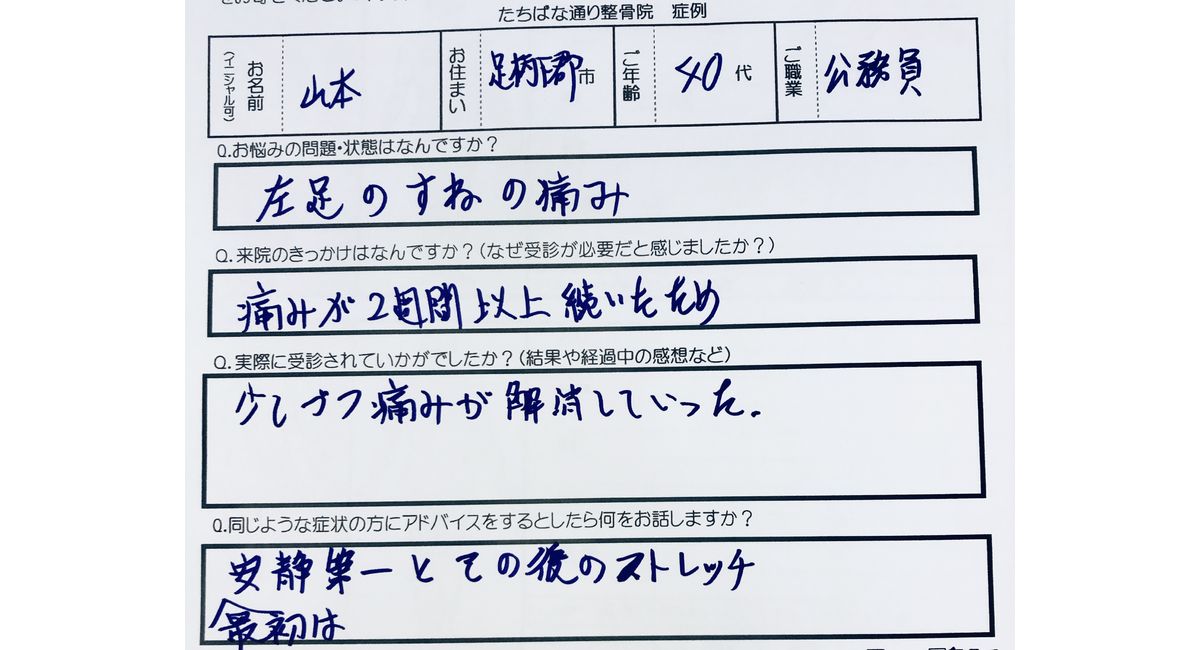 たちばな通り整骨院 症例
お名前 (イニシャル可) 山本 お住まい 足柄上郡市 ご年齢 40代 ご職業 公務員
Q.お悩みの問題・状態はなんですか？
左足のすねの痛み
Q.来院のきっかけはなんですか？(なぜ受診が必要だと感じましたか？)
痛みが2週間以上続いたため
Q.実際に受診されていかがでしたか？(結果や経過中の感想など)
少しづつ痛みが解消していった。
Q.同じような症状の方にアドバイスをするとしたら何をお話しますか？
安静第一とその後のストレッチ
最初は